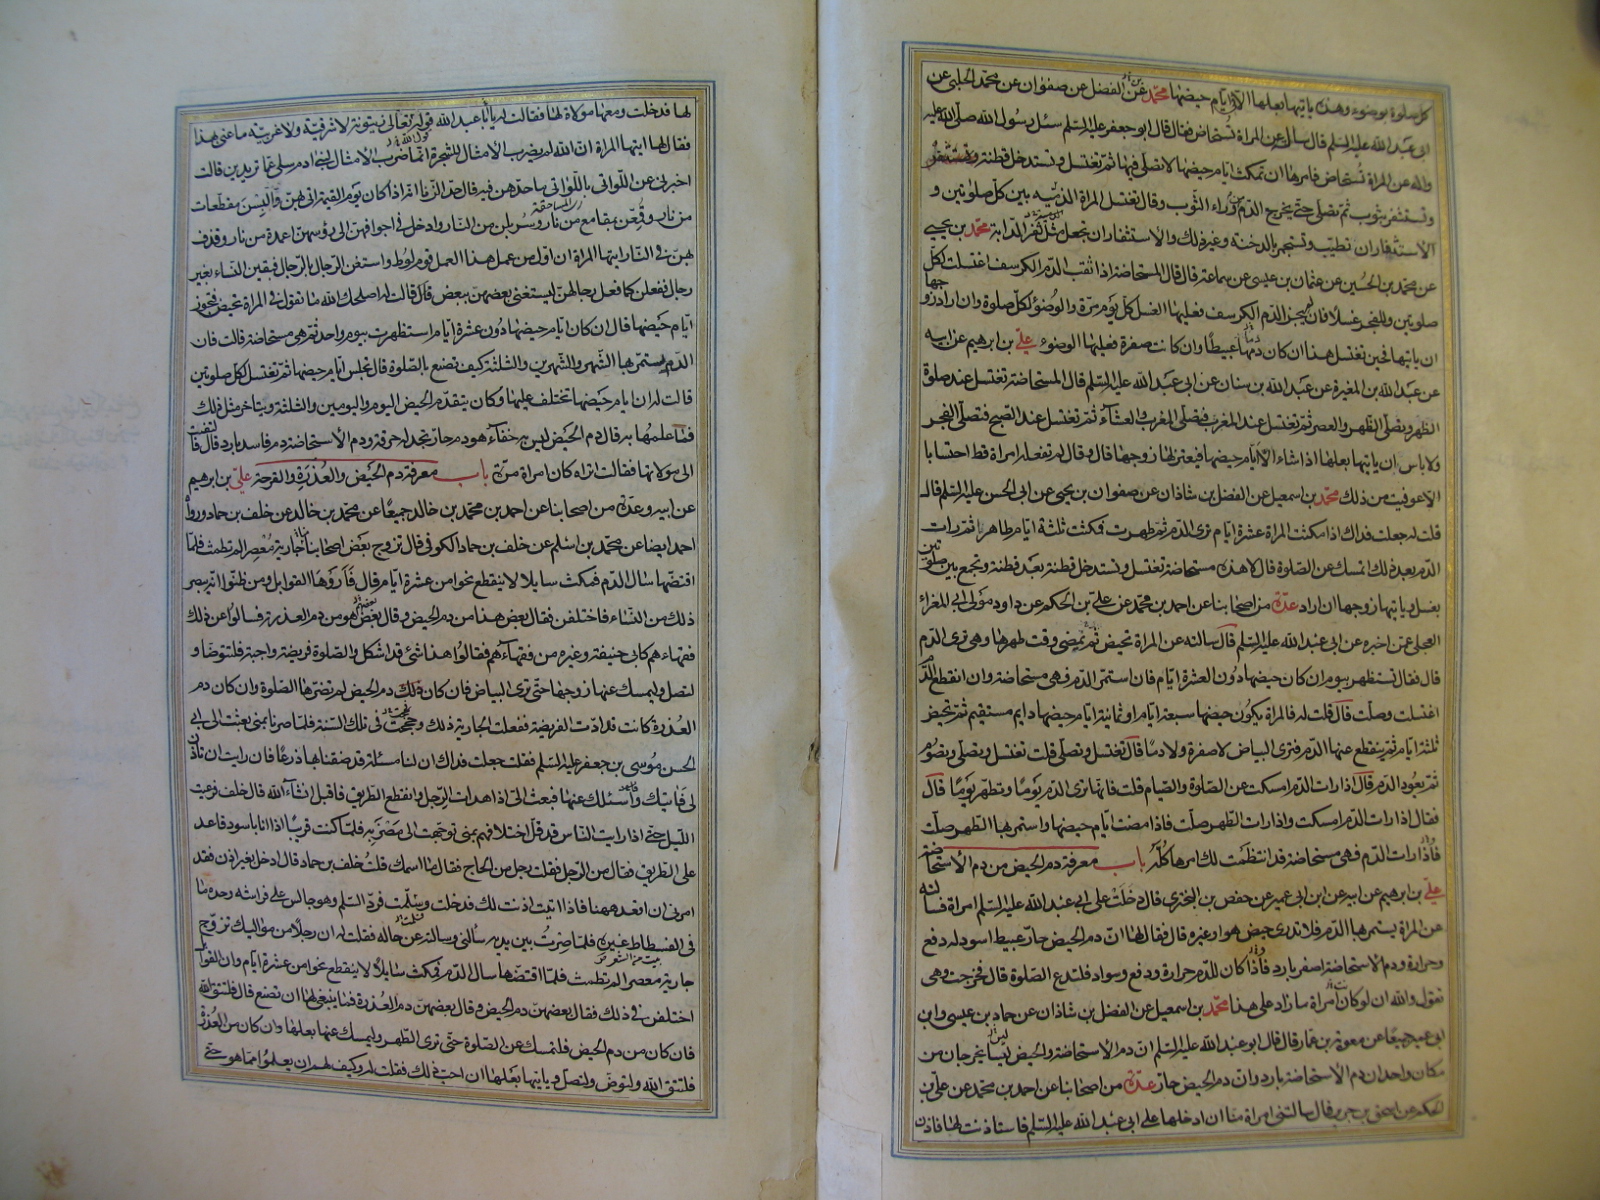 كل صلوة بوضوء وهذه ياتيها بعلها الا ايام حيضها محمد عن الفضل عن صفوان عن محمد الحلبي عن
ابي عبد الله عليه السلم قال سالته عن المراة تستحاض فقال قال ابو جعفر عليه السلم سئل رسول الله صلى الله عليه
واله عن المراة تستحاض فامرها ان تمكث ايام حيضها لا تصلي فيها ثم تغتسل وتستدخل قطنة وتستثفر
وتستثفر بثوب ثم تصلي حتى يخرج الدم من وراء الثوب وقال تغتسل المراة الدمية بين كل صلوتين و
الاستذفار ان تطيب وتستجمر بالدخنة وغير ذلك والاستثفار ان تجعل مثل ثفر الدابة محمد بن يحيى
عن محمد بن الحسين عن عثمان بن عيسى عن سماعة قال قال المستحاضة اذا ثقب الدم الكرسف اغتسلت لكل
صلوتين وللفجر غسلا فان لم يجز الدم الكرسف فعليها الغسل كل يوم مرة والوضوء لكل صلوة وان اراد زوجها
ان ياتيها فحين تغتسل هذا ان كان دمها عبيطا وان كانت صفرة فعليها الوضوء علي بن ابرهيم عن ابيه
عن عبد الله بن المغيرة عن عبد الله بن سنان عن ابي عبد الله عليه السلم قال المستحاضة تغتسل عند صلوة
الظهر وتصلي الظهر والعصر ثم تغتسل عند المغرب فتصلي المغرب والعشاء ثم تغتسل عند الصبح فتصلي الفجر
ولا باس ان ياتيها بعلها اذا شاء الا ايام حيضها فيعتزلها زوجها قال وقال لم تفعله امراة قط احتسابا
الا عوفيت من ذلك محمد بن اسمعيل عن الفضل بن شاذان عن صفوان بن يحيى عن ابي الحسن عليه السلم قال
قلت له جعلت فداك اذا مكثت المراة عشرة ايام ترى الدم ثم طهرت فمكثت ثلثة ايام طاهرا ثم رات
الدم بعد ذلك اتمسك عن الصلوة قال لا هذه مستحاضة تغتسل وتستدخل قطنة بعد قطنة وتجمع بين صلوتين
بغسل وياتيها زوجها ان اراد عدة من اصحابنا عن احمد بن محمد عن علي بن الحكم عن داود مولى ابي المغراء
العجلي عمن اخبره عن ابي عبد الله عليه السلم قال سالته عن المراة تحيض ثم تمضي وقت طهرها وهي ترى الدم
قال فقال تستظهر بيوم ان كان حيضها دون العشرة ايام فان استمر الدم فهي مستحاضة وان انقطع الدم
اغتسلت وصلت قال قلت له فالمراة يكون حيضها سبعة ايام او ثمانية ايام حيضها دايم مستقيم ثم تحيض
ثلثة ايام ثم ينقطع عنها الدم فترى البياض لا صفرة ولا دما قال تغتسل وتصلي قلت تغتسل وتصلي وتصوم
ثم يعود الدم قال اذا رات الدم امسكت عن الصلوة والصيام قلت فانها ترى الدم يوما وتطهر يوما قال
فقال اذا رات الدم امسكت واذا رات الطهر صلت فاذا مضت ايام حيضها واستمر بها الطهر صلت
فاذا رات الدم فهي مستحاضة قد انتظمت لك امرها كله باب معرفة دم الحيض من دم الاستحاضة
علي بن ابرهيم عن ابيه عن ابن ابي عمير عن حفص بن البختري قال دخلت على ابي عبد الله عليه السلم امراة فسالته
عن المراة يستمر بها الدم فلا تدري حيض هو او غيره قال فقال لها ان دم الحيض حار عبيط اسود له دفع
وحرارة ودم الاستحاضة اصفر بارد فاذا كان للدم حرارة ودفع وسواد فلتدع الصلوة قال فخرجت وهي
تقول والله ان لو كان امراة ما زاد على هذا محمد بن اسمعيل عن الفضل بن شاذان عن حماد بن عيسى وابن
ابي عمير جميعا عن معوية بن عمار قال قال ابو عبد الله عليه السلم ان دم الاستحاضة والحيض ليسا يخرجان من
مكان واحد ان دم الاستحاضة بارد وان دم الحيض حار عدة من اصحابنا عن احمد بن محمد عن علي بن
الحكم عن اسحق بن جرير قال سالتني امراة منا ان ادخلها على ابي عبد الله عليه السلم فاستاذنت لها فاذن
لها فدخلت ومعها مولاة لها فقالت له يا ابا عبد الله قوله تعالى زيتونة لا شرقية ولا غربية ما عنى بهذا
فقال لها ايتها المراة ان الله لم يضرب الامثال للشجرة انما ضرب الامثال لبني ادم سلي عما تريدين قالت
اخبرني عن اللواتي باللواتي ما حدهن فيه قال حد الزنا انه اذا كان يوم القيمة اتي بهن والبسن مقطعات
من نار وقمعن بمقامع من نار وسربلن من النار وادخل في اجوافهن الى رؤسهن اعمدة من نار وقذف
بهن في النار ايتها المراة ان اول من عمل هذا العمل قوم لوط واستغنى الرجال بالرجال فبقين النساء بغير
رجال ففعلن كما فعل رجالهن ليستغني بعضهن ببعض قال قالت له اصلحك الله ما تقول في المراة تحيض فتجوز
ايام حيضها قال ان كان ايام حيضها دون عشرة ايام استظهرت بيوم واحد ثم هي مستحاضة قالت فان
الدم يستمر بها الشهر والشهرين والثلثة كيف تصنع بالصلوة قال تجلس ايام حيضها ثم تغتسل لكل صلوتين
قالت له ان ايام حيضها تختلف عليها وكان يتقدم الحيض اليوم واليومين والثلثة ويتاخر مثل ذلك
فما علمها به قال دم الحيض ليس به خفاء هو دم حار تجد له حرقة ودم الاستحاضة دم فاسد بارد قال فالتفتت
الى مولاتها فقالت اتراه كان امراة مرة باب معرفة دم الحيض والعذرة والقرحة علي بن ابرهيم
عن ابيه وعدة من اصحابنا عن احمد بن محمد بن خالد جميعا عن محمد بن خالد عن خلف بن حماد ورواه
احمد ايضا عن محمد بن اسلم عن خلف بن حماد الكوفي قال تزوج بعض اصحابنا جارية معصر لم تطمث فلما
اقتضها سال الدم فمكث سايلا لا ينقطع نحوا من عشرة ايام قال فاروها القوابل ومن ظنوا انه يبصر
ذلك من النساء فاختلفن فقال بعض هذا من دم الحيض وقال بعض هو من دم العذرة فسالوا عن ذلك
فقهاءهم كابي حنيفة وغيره من فقهاءهم فقالوا هذا شئ قد اشكل والصلوة فريضة واجبة فلتتوضا و
لتصل وليمسك عنها زوجها حتى ترى البياض فان كان ذلك دم الحيض لم تضرها الصلوة وان كان دم
العذرة كانت قد ادت الفريضة ففعلت الجارية ذلك وحججت في تلك السنة فلما صرنا بمنى بعثت الى ابي
الحسن موسى بن جعفر عليه السلم فقلت جعلت فداك ان لنا مسئلة قد ضقنا بها ذرعا فان رايت ان تاذن
لي فاتيك واسئلك عنها فبعث الي اذا هدات الرجل وانقطع الطريق فاقبل انشاء الله قال خلف فرعيت
الليل حتى اذا رايت الناس قد قل اختلافهم بمنى توجهت الى مضربه فلما كنت قريبا اذا انا باسود قاعد
على الطريق فقال من الرجل فقلت رجل من الحاج فقال ما اسمك قلت خلف بن حماد قال ادخل بغير اذن فقد
امرني ان اقعد ههنا فاذا اتيت اذنت لك فدخلت وسلمت فرد السلم وهو جالس على فراشه وحده ما
في الفسطاط غيره فلما صرت بين يديه سالني وسالته عن حاله فقلت له ان رجلا من مواليك تزوج
جارية معصر لم تطمث فلما اقتضها سال الدم فمكث سايلا لا ينقطع نحوا من عشرة ايام وان القوابل
اختلفن في ذلك فقال بعضهن دم الحيض وقال بعضهن دم العذرة فما ينبغي لها ان تصنع قال فلتتق الله
فان كان من دم الحيض فلتمسك عن الصلوة حتى ترى الطهر وليمسك عنها بعلها وان كان من العذرة
فلتتق الله ولتوض ولتصل وياتيها بعلها ان احب ذلك فقلت له وكيف لهم ان يعلموا مما هو حتى